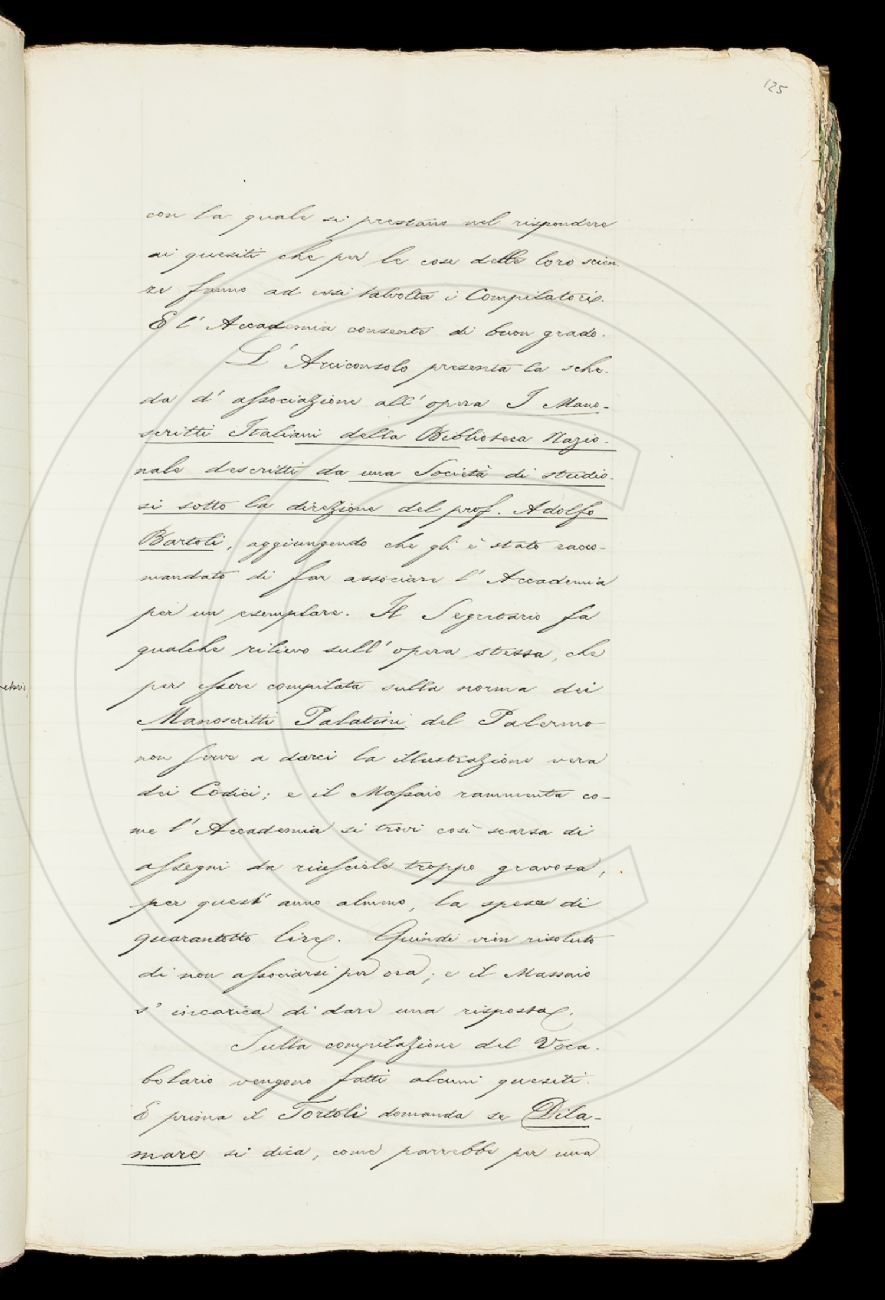 125
con la quale si prestano nel rispondere
ai quesiti che per le cose delle loro scien-
ze fanno ad essi talvolta i Compilatori.
E l'Accademia consente di buon grado.
L'Arciconsolo presenta la sche-
da d'associazione all'opera I Mano-
scritti Italiani della Biblioteca Nazio-
nale descritti da una Società di studio-
si sotto la direzione del prof. Adolfo
Bartoli, aggiungendo che gli è stato racco-
mandato di far associare l'Accademia
per un esemplare. Il Segretario fa
qualche rilievo sull'opera stessa, che
per essere compilata sulla norma dei
Manoscritti Palatini del Palermo
non serve a darci la illustrazione vera
dei Codici; e il Massaio rammenta co-
me l'Accademia si trovi così scarsa di
assegni da riuscirle troppo gravosa,
per quest'anno almeno, la spesa di
quarantotto lire. Quindi vien risoluto
di non associarsi per ora; e il Massaio
s'incarica di dare una risposta.
Sulla compilazione del Voca-
bolario vengono fatti alcuni quesiti.
E prima il Tortoli domanda se Dila-
mare si dica, come parrebbe per una